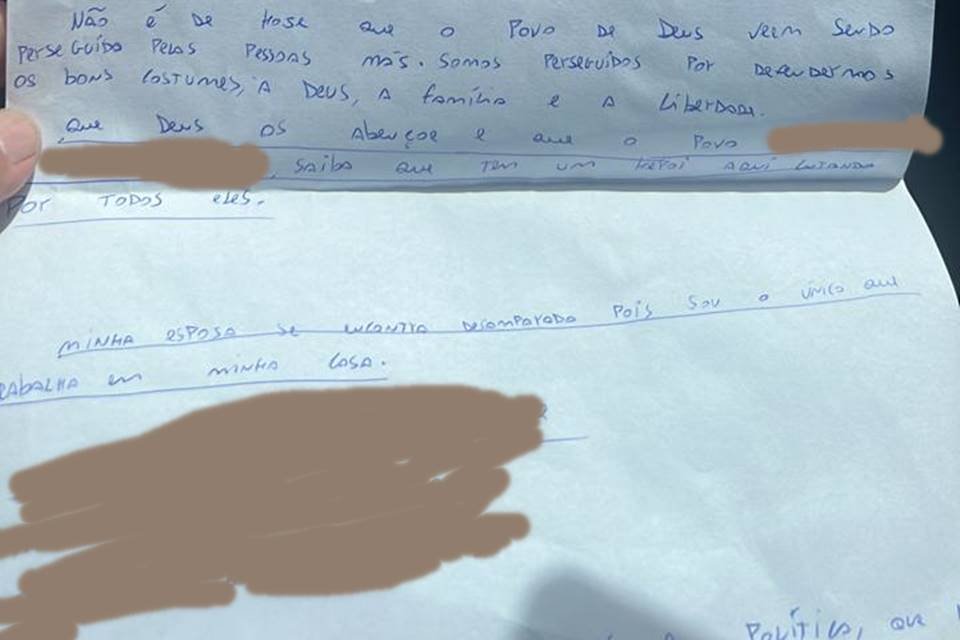 NÃO é DE HOJE QUE O POVO DE DEUS VEEM SENDO
PERSEGUIDO PELAS PESSOAS MÁS. SOMOS PERSEGUIDOS POR DEFENDERMOS
OS BONS COSTUMES, A DEUS, A família e A LIBERDADE.
QUE DEUS OS ABENÇOE E QUE O POVO
, SAIBA QUE TEM UM HERÓI AQUI LUTANDO
POR TODOS ELES.
MINHA ESPOSA SE ENCONTRA DESAMPARADA POIS SOU O ÚNICO QUE
TRABALHA EM MINHA CASA.
POLÍTICA, QUE